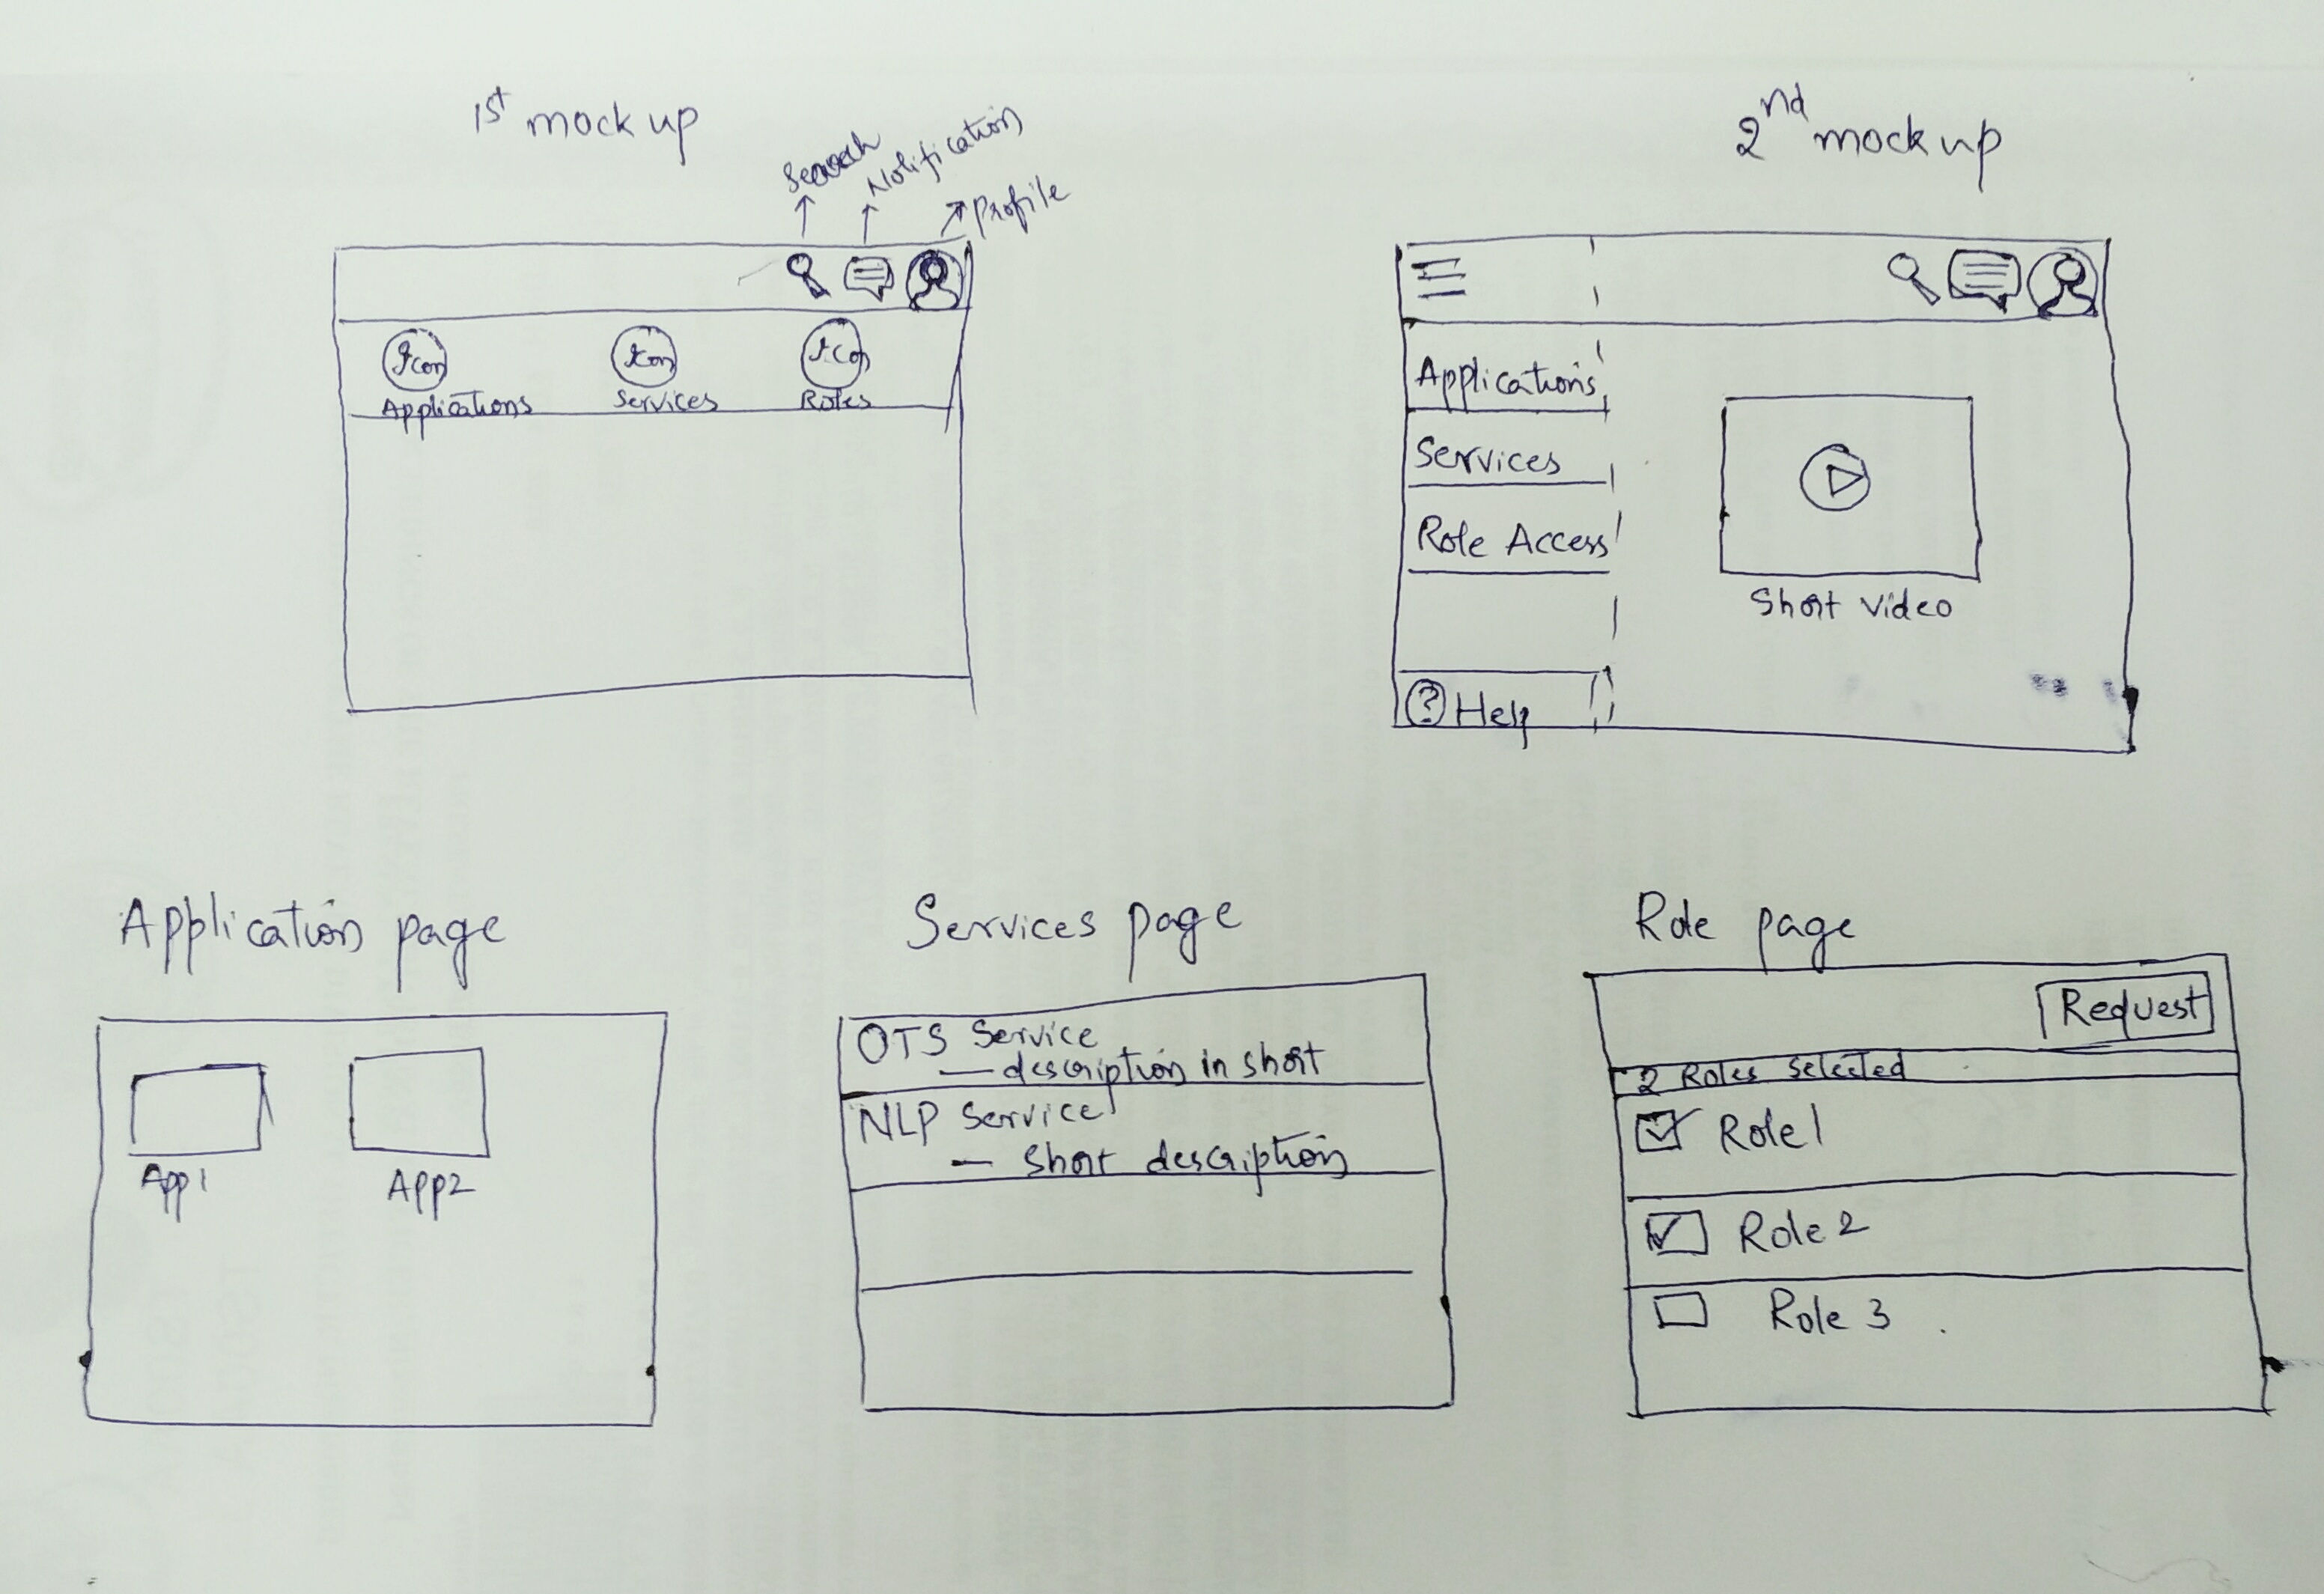 1st mock up
Search
Notification
Profile
Icon
Icon
Icon
Applications
Services
Roles
2nd mock up
Applications
Services
Role Access
? Help
Short video
Application page
App1
App2
Services page
OTS Service
— description in short
NLP Service
— Short description
Role page
Request
2 Roles selected
Role 1
Role 2
Role 3